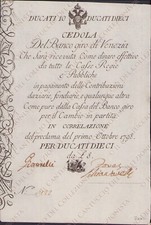 DUCATI 10 DUCATI DIECI
CEDOLA
Del Banco giro di Venezia
Che sarà ricevuta Come dinaro effettivo
da tutte le Casse Regie
e Pubbliche
in pagamento delle Contribuzioni
daziarie, fondiarie, e qualunque altra
Come pure dalla Cassa del Banco giro
per il Cambio in partita
IN CORRELAZIONE
del proclama del primo Ottobre 1798
PER DUCATI DIECI